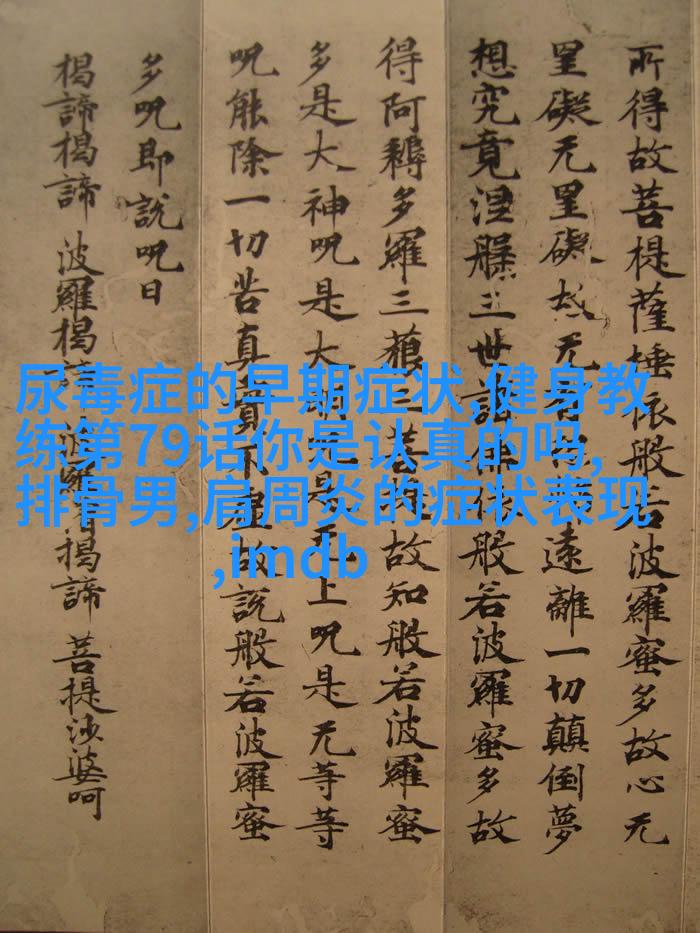 所得故菩提薩埵依般若波羅蜜多故心无
罣礙无罣礙故无有 遠離一切顛倒夢
想究竟涅槃三世諸佛依般若波羅蜜多故
得阿耨多羅三藐三菩提故知般若波羅蜜
多是大神呪是大明呪是无上呪是无等等
呪能除一切苦真實不虛故說般若波羅蜜
多呪即說呪曰
揭諦揭諦 波羅揭諦 波羅 揭諦 菩提沙婆呵
尿毒症的早期症状,健身教
练第79话你是认真的吗,
排骨男,肩周炎的症状表现
,imdb